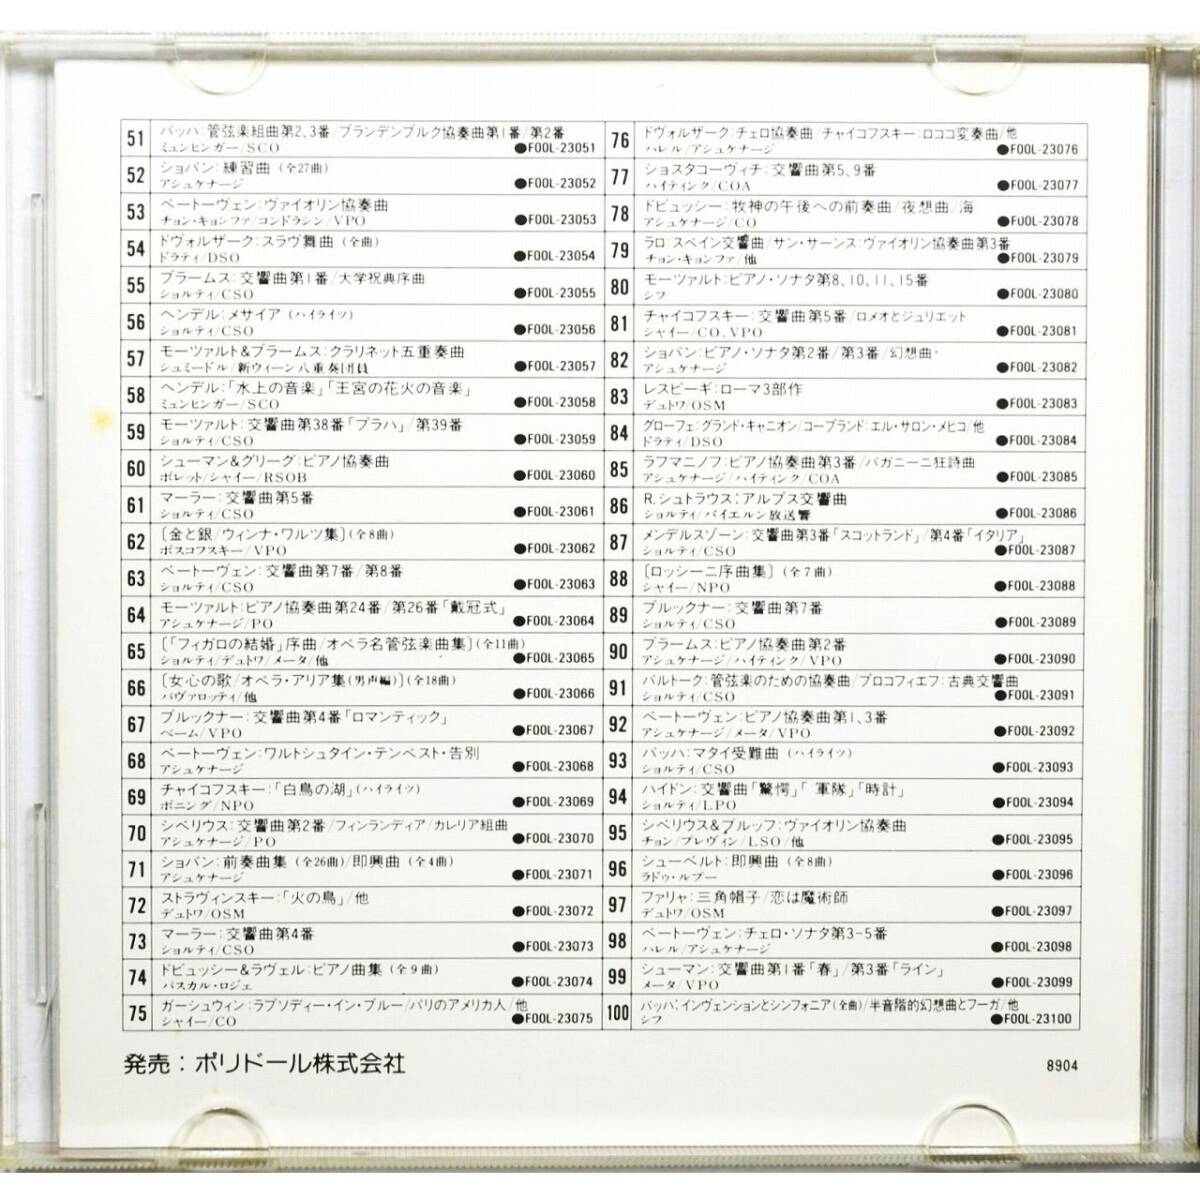 51 バッハ:管弦楽組曲第2、3番/ブランデンブルク協奏曲第1番/第2番
ミュンヒンガー/SCO ●F00L-23051
52 ショパン:練習曲(全27曲)
アシュケナージ ●F00L-23052
53 ベートーヴェン:ヴァイオリン協奏曲
チョン・キョンファ/コンドラシン/VPO ●F00L-23053
54 ドヴォルザーク:スラヴ舞曲(全曲)
ドラティ/DSO ●F00L-23054
55 ブラームス:交響曲第1番/大学祝典序曲
ショルティ/CSO ●F00L-23055
56 ヘンデル:メサイア(ハイライツ)
ショルティ/CSO ●F00L-23056
57 モーツァルト&ブラームス:クラリネット五重奏曲
シュミードル/新ウィーン八重奏団員 ●F00L-23057
58 ヘンデル:「水上の音楽」「王宮の花火の音楽」
ミュンヒンガー/SCO ●F00L-23058
59 モーツァルト:交響曲第38番「プラハ」/第39番
ショルティ/CSO ●F00L-23059
60 シューマン&グリーグ:ピアノ協奏曲
ボレット/シャイー/RSOB ●F00L-23060
61 マーラー:交響曲第5番
ショルティ/CSO ●F00L-23061
62 〔金と銀/ウィンナ・ワルツ集〕(全8曲)
ボスコフスキー/VPO ●F00L-23062
63 ベートーヴェン:交響曲第7番/第8番
ショルティ/CSO ●F00L-23063
64 モーツァルト:ピアノ協奏曲第24番/第26番「戴冠式」
アシュケナージ/PO ●F00L-23064
65 〔「フィガロの結婚」序曲/オペラ名管弦楽曲集〕(全11曲)
ショルティ/デュトワ/メータ/他 ●F00L-23065
66 〔女心の歌/オペラ・アリア集(男声編)〕(全18曲)
パヴァロッティ/他 ●F00L-23066
67 ブルックナー:交響曲第4番「ロマンティック」
ベーム/VPO ●F00L-23067
68 ベートーヴェン:ワルトシュタイン・テンペスト・告別
アシュケナージ ●F00L-23068
69 チャイコフスキー:「白鳥の湖」(ハイライツ)
ボニング/NPO ●F00L-23069
70 シベリウス:交響曲第2番/フィンランディア/カレリア組曲
アシュケナージ/PO ●F00L-23070
71 ショパン:前奏曲集(全26曲)/即興曲(全4曲)
アシュケナージ ●F00L-23071
72 ストラヴィンスキー:「火の鳥」/他
デュトワ/OSM ●F00L-23072
73 マーラー:交響曲第4番
ショルティ/CSO ●F00L-23073
74 ドビュッシー&ラヴェル:ピアノ曲集(全9曲)
パスカル・ロジェ ●F00L-23074
75 ガーシュウィン:ラプソディー・イン・ブルー/パリのアメリカ人/他
シャイー/CO ●F00L-23075
76 ドヴォルザーク:チェロ協奏曲/チャイコフスキー:ロココ変奏曲/他
ハレル/アシュケナージ ●F00L-23076
77 ショスタコーヴィチ:交響曲第5、9番
ハイティンク/COA ●F00L-23077
78 ドビュッシー:牧神の午後への前奏曲/夜想曲/海
アシュケナージ/CO ●F00L-23078
79 ラロ:スペイン交響曲/サン・サーンス:ヴァイオリン協奏曲第3番
チョン・キョンファ/他 ●F00L-23079
80 モーツァルト:ピアノ・ソナタ第8、10、11、15番
シフ ●F00L-23080
81 チャイコフスキー:交響曲第5番/ロメオとジュリエット
シャイー/CO、VPO ●F00L-23081
82 ショパン:ピアノ・ソナタ第2番/第3番/幻想曲
アシュケナージ ●F00L-23082
83 レスピーギ:ローマ3部作
デュトワ/OSM ●F00L-23083
84 グローフェ:グランド・キャニオン/コープランド:エル・サロン・メヒコ/他
ドラティ/DSO ●F00L-23084
85 ラフマニノフ:ピアノ協奏曲第3番/パガニーニ狂詩曲
アシュケナージ/ハイティンク/COA ●F00L-23085
86 R.シュトラウス:アルプス交響曲
ショルティ/バイエルン放送響 ●F00L-23086
87 メンデルスゾーン:交響曲第3番「スコットランド」/第4番「イタリア」
ショルティ/CSO ●F00L-23087
88 〔ロッシーニ序曲集〕(全7曲)
シャイー/NPO ●F00L-23088
89 ブルックナー:交響曲第7番
ショルティ/CSO ●F00L-23089
90 ブラームス:ピアノ協奏曲第2番
アシュケナージ/ハイティンク/VPO ●F00L-23090
91 バルトーク:管弦楽のための協奏曲/プロコフィエフ:古典交響曲
ショルティ/CSO ●F00L-23091
92 ベートーヴェン:ピアノ協奏曲第1、3番
アシュケナージ/メータ/VPO ●F00L-23092
93 バッハ:マタイ受難曲(ハイライツ)
ショルティ/CSO ●F00L-23093
94 ハイドン:交響曲「驚愕」「軍隊」「時計」
ショルティ/LPO ●F00L-23094
95 シベリウス&ブルッフ:ヴァイオリン協奏曲
チョン/プレヴィン/LSO/他 ●F00L-23095
96 シューベルト:即興曲(全8曲)
ラドゥ・ルプー ●F00L-23096
97 ファリャ:三角帽子/恋は魔術師
デュトワ/OSM ●F00L-23097
98 ベートーヴェン:チェロ・ソナタ第3-5番
ハレル/アシュケナージ ●F00L-23098
99 シューマン:交響曲第1番「春」/第3番「ライン」
メータ/VPO ●F00L-23099
100 バッハ:インヴェンションとシンフォニア(全曲)/半音階的幻想曲とフーガ/他
シフ ●F00L-23100
発売:ポリドール株式会社
8904